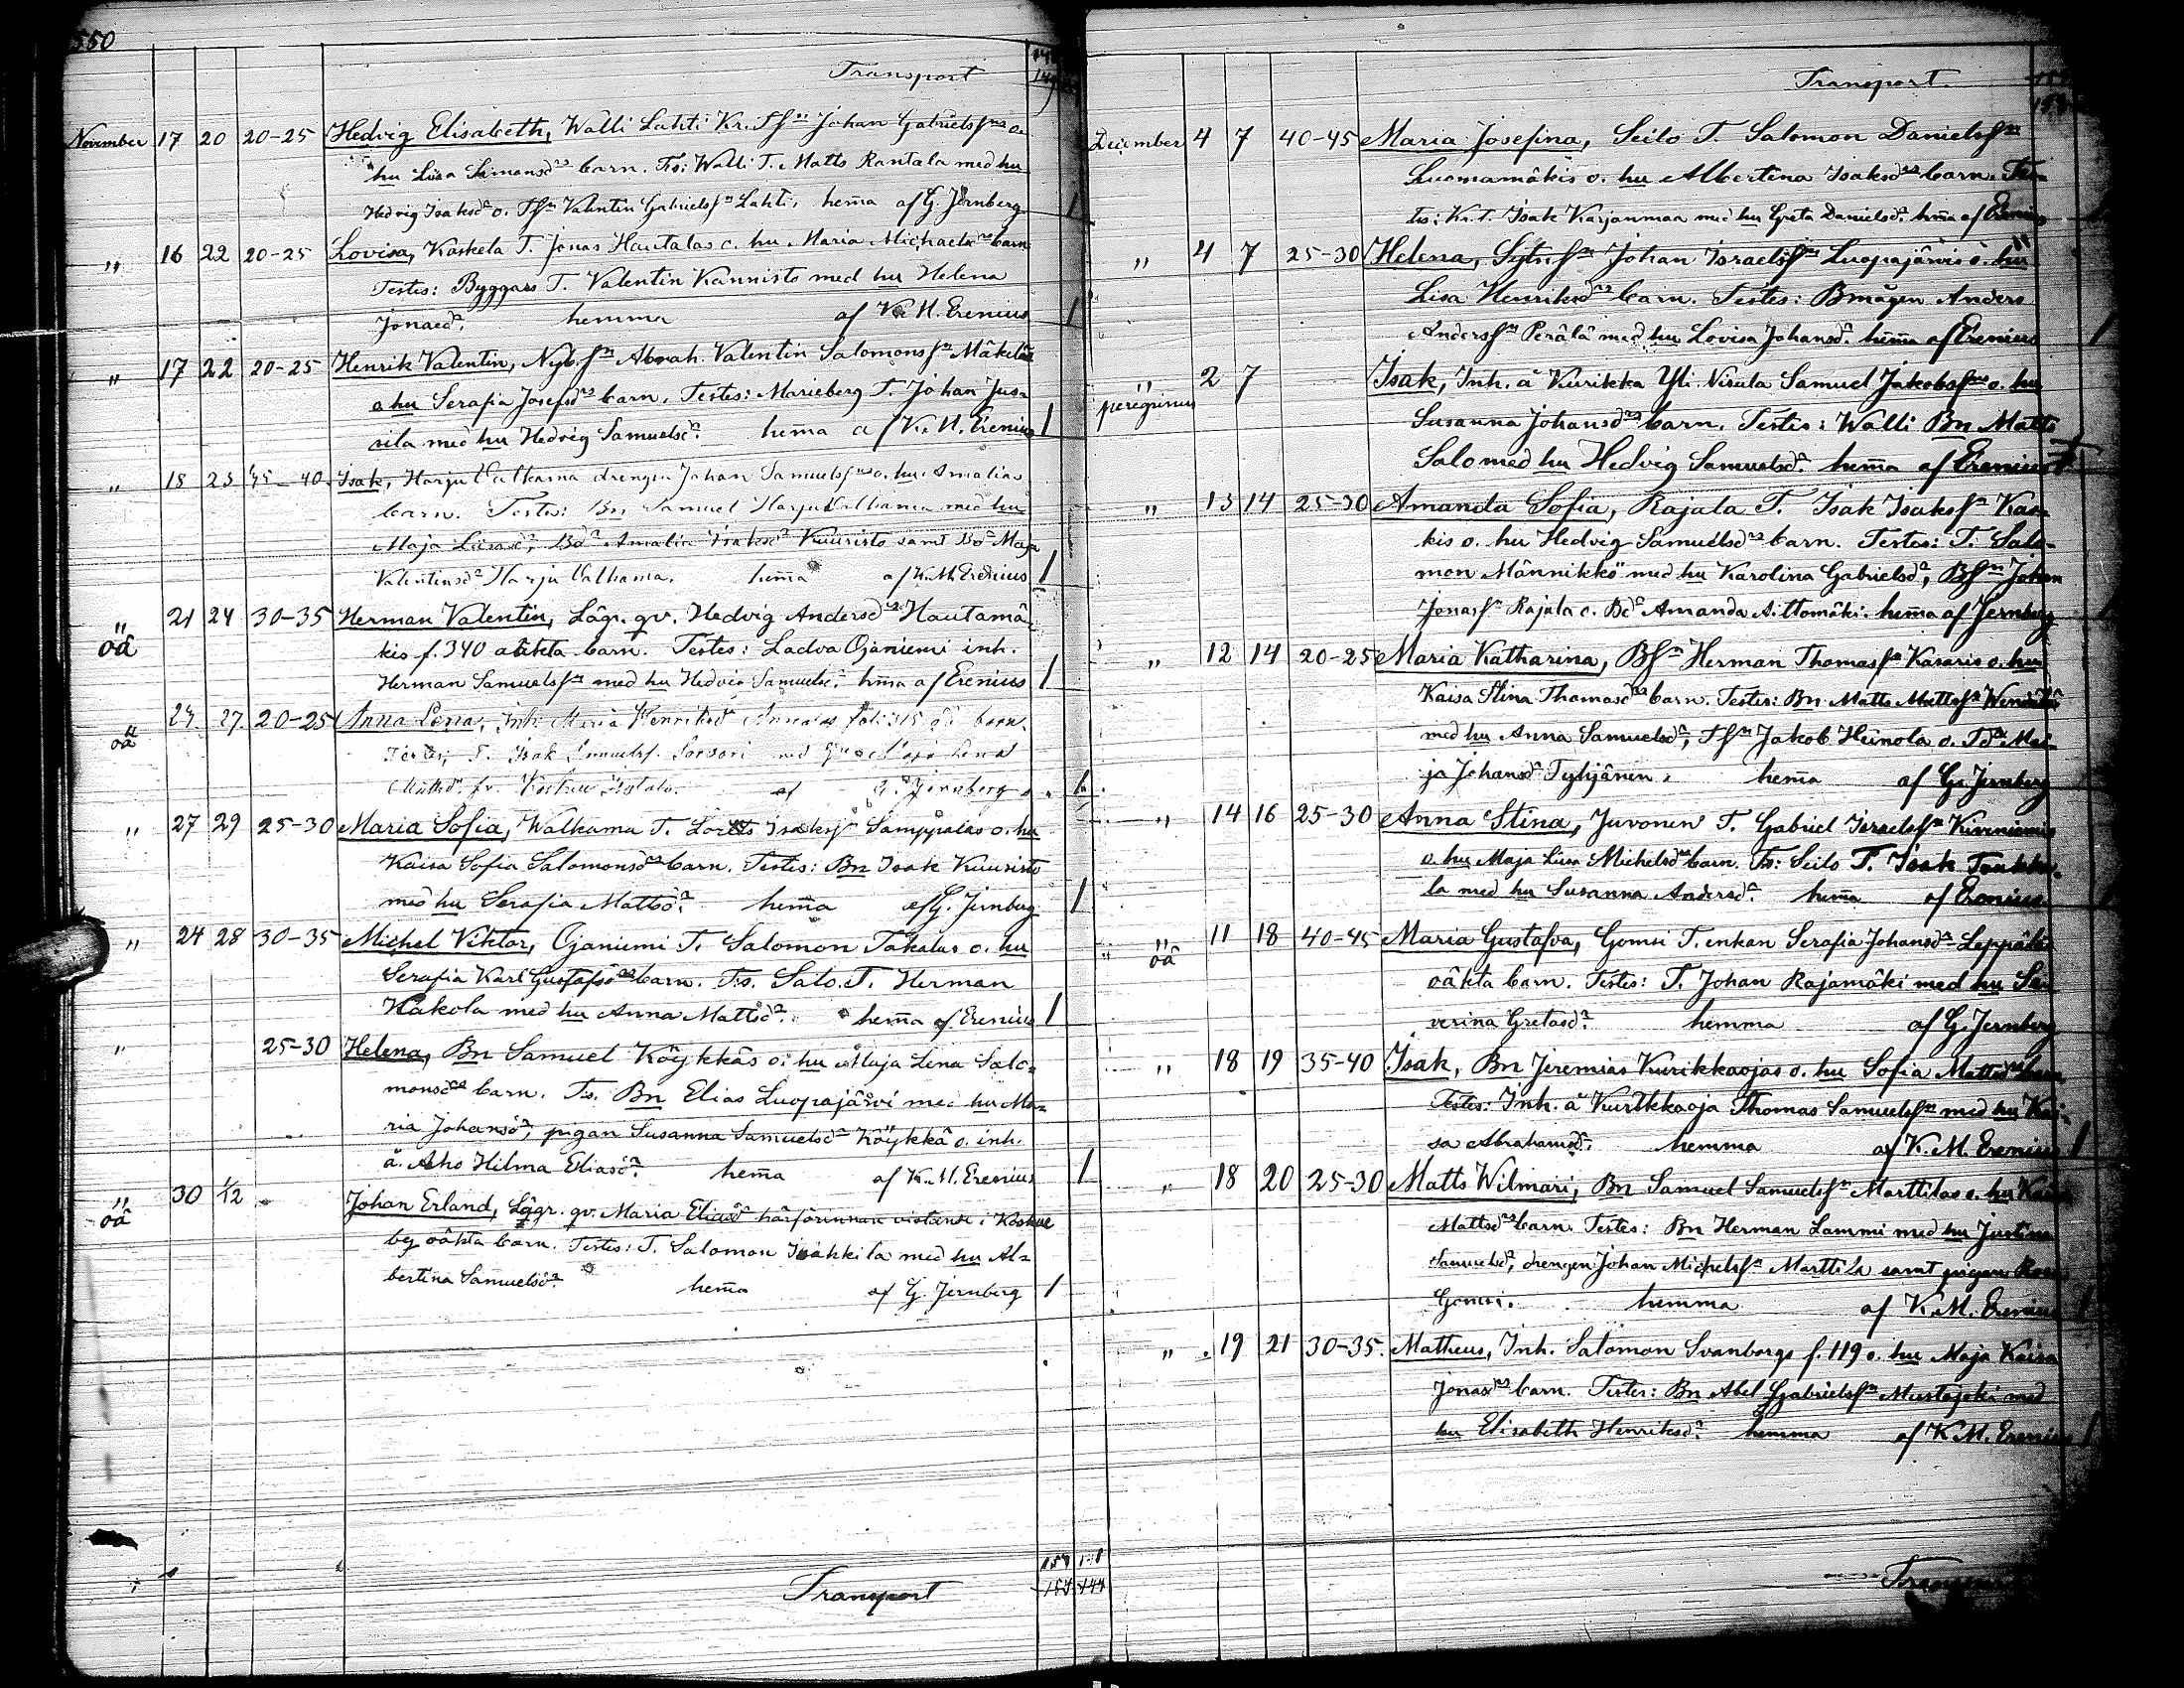 550
Transport
November 17 20 20-25 Hedvig Elisabeth, Walli Lahti Kr. Tsn Johan Gabrielssns o.
hu Lisa Simonsdrs barn. Ts: Walli T. Matts Rantala med hu
Hedvig Isaksdr o. Tsn Valentin Gabrielssn Lahti, hemma af G. Jernberg 1
" 16 22 20-25 Lovisa, Kaskela T. Jonas Hautalas o. hu Maria Michaelsdrs barn
Testes: Byggars T. Valentin Kannisto med hu Helena
Jonaedr, hemma af K. M. Erenius 1
" 17 22 20-25 Henrik Valentin, Nyb.sn Abrah. Valentin Salomonssn Mäkeläs
o hu Serafia Josefsdrs barn. Testes: Marieberg T. Johan Jus-
sila med hu Hedvig Samuelsdr. hemma af K. M. Erenius 1
" 18 23 35-40 Isak, Harju Valkama drengen Johan Samuelssns o. hu Amalias
barn. Testes: Bn Samuel Harju Valkama med hu
Maja Lisasdr, Bdr Amalia Isaksdr Kuuristo samt Bdr Maja
Valentinsdr Harju Valkama. hemma af K. M. Erenius 1
" oä 21 24 30-35 Herman Valentin, Lägr. qv. Hedvig Andersdrs Hautamä-
kis f. 340 oäkta barn. Testes: Ladva Ojaniemi inh.
Herman Samuelssn med hu Hedvig Samuelsdr. hma af Erenius 1
" oä 24 27 20-25 Anna Lena, Inh. Maria Henriksdr
Testes: T. Isak Samuelss. Lena
af G. Jernberg 1
" 27 29 25-30 Maria Sofia, Walkama T. Isakssn Samppalas o. hu
Kaisa Sofia Salomonsdrs barn. Testes: Bn Isak Kuuristo
med hu Serafia Mattsdr. hemma af G. Jernberg 1
" 24 28 30-35 Michel Viktor, Ojaniemi T. Salomon Takalas o. hu
Serafia Karl Gustafsdrs barn. Ts. Salo. T. Herman
Hakola med hu Anna Mattsdr. hemma af Erenius 1
" 25-30 Helena, Bn Samuel Köykkäs o. hu Maja Lena Salo-
monsdrs barn. Ts. Bn Elias Luopajärvi med hu Ma-
ria Johansdr, pigan Susanna Samuelsdr Köykkä o. inh.
å. Aho Hilma Eliasdr. hemma af K. M. Erenius 1
" oä 30 1/12 Johan Erland, Lägr. qv. Maria Eliasdr härförinnan vistande i Koskue
by oäkta barn. Testes: T. Salomon Isokkila med hu Al-
bertina Samuelsdr hemma af G. Jernberg 1
Transport
Transport.
December 4 7 40-45 Maria Josefina, Seilo T. Salomon Danielssn
Luomamäkis o. hu Albertina Isaksdrs barn. Tes-
tes: Kr. T. Isak Karjanmaa med hu Greta Danielsdr. hma af Erenius
" 4 7 25-30 Helena, Sytn.sn Johan Israelssn Luopajärvis o. hu
Lisa Henriksdrs barn. Testes: Bmågen Anders
Anderssn Perälä med hu Lovisa Johansdr. hemma af Erenius 1
" peregrinus 2 7 Isak, Inh. å Kurikka Yli Nisula Samuel Jakobssns o. hu
Susanna Johansdrs barn. Testes: Walli Bn Matts
Salo med hu Hedvig Samuelsdr. hemma af Erenius
" 13 14 25-30 Amanda Sofia, Rajala T. Isak Isakssn Kas-
kis o. hu Hedvig Samuelsdrs barn. Testes: T. Salo-
mon Männikkö med hu Karolina Gabrielsdr, Bsn Johan
Jonassn Rajala o. Bdr Amanda Aittomäki. hemma af Jernberg
" 12 14 20-25 Maria Katharina, Bsn Herman Thomassn Kasaris o. hu
Kaisa Stina Thomasdrs barn. Testes: Bn Matts Mattssn Wendälä
med hu Anna Samuelsdr, Tsn Jakob Heinola o. Tdr Ma-
ja Johansdr Tyhjänen. hemma af G. Jernberg
" 14 16 25-30 Anna Stina, Juvonen T. Gabriel Israelssn Kiviniemis
o. hu Maja Lisa Michelsdrs barn. Ts: Seilo T. Isak
la med hu Susanna Andersdr. hemma af Erenius
" oä 11 18 40-45 Maria Gustafva, Gomsi T. enkan Serafia Johansdr Leppäläs
oäkta barn. Testes: T. Johan Rajamäki med hu Se-
verina Gretasdr. hemma af G. Jernberg
" 18 19 35-40 Isak, Bn Jeremias Kurikkaojas o. hu Sofia Mattsdrs barn.
Testes: Inh. å Kurikkaoja Thomas Samuelssn med hu Kai-
sa Abrahamsdr. hemma af K. M. Erenius 1
" 18 20 25-30 Matts Wilmari, Bn Samuel Samuelssn Marttilas o. hu Kaisa
Mattsdrs barn. Testes: Bn Herman Lammi med hu Justina
Samuelsdr, drengen Johan Michelssn Marttila samt pigan
Gomsi. hemma af K. M. Erenius 1
" 19 21 30-35 Matheus, Inh. Salomon Svanborgs f. 119 o. hu Maja Kaisa
Jonasdrs barn. Testes: Bn Abel Gabrielssn Mustajoki med
hu Elisabeth Henriksdr. hemma af K. M. Erenius 1
Transport